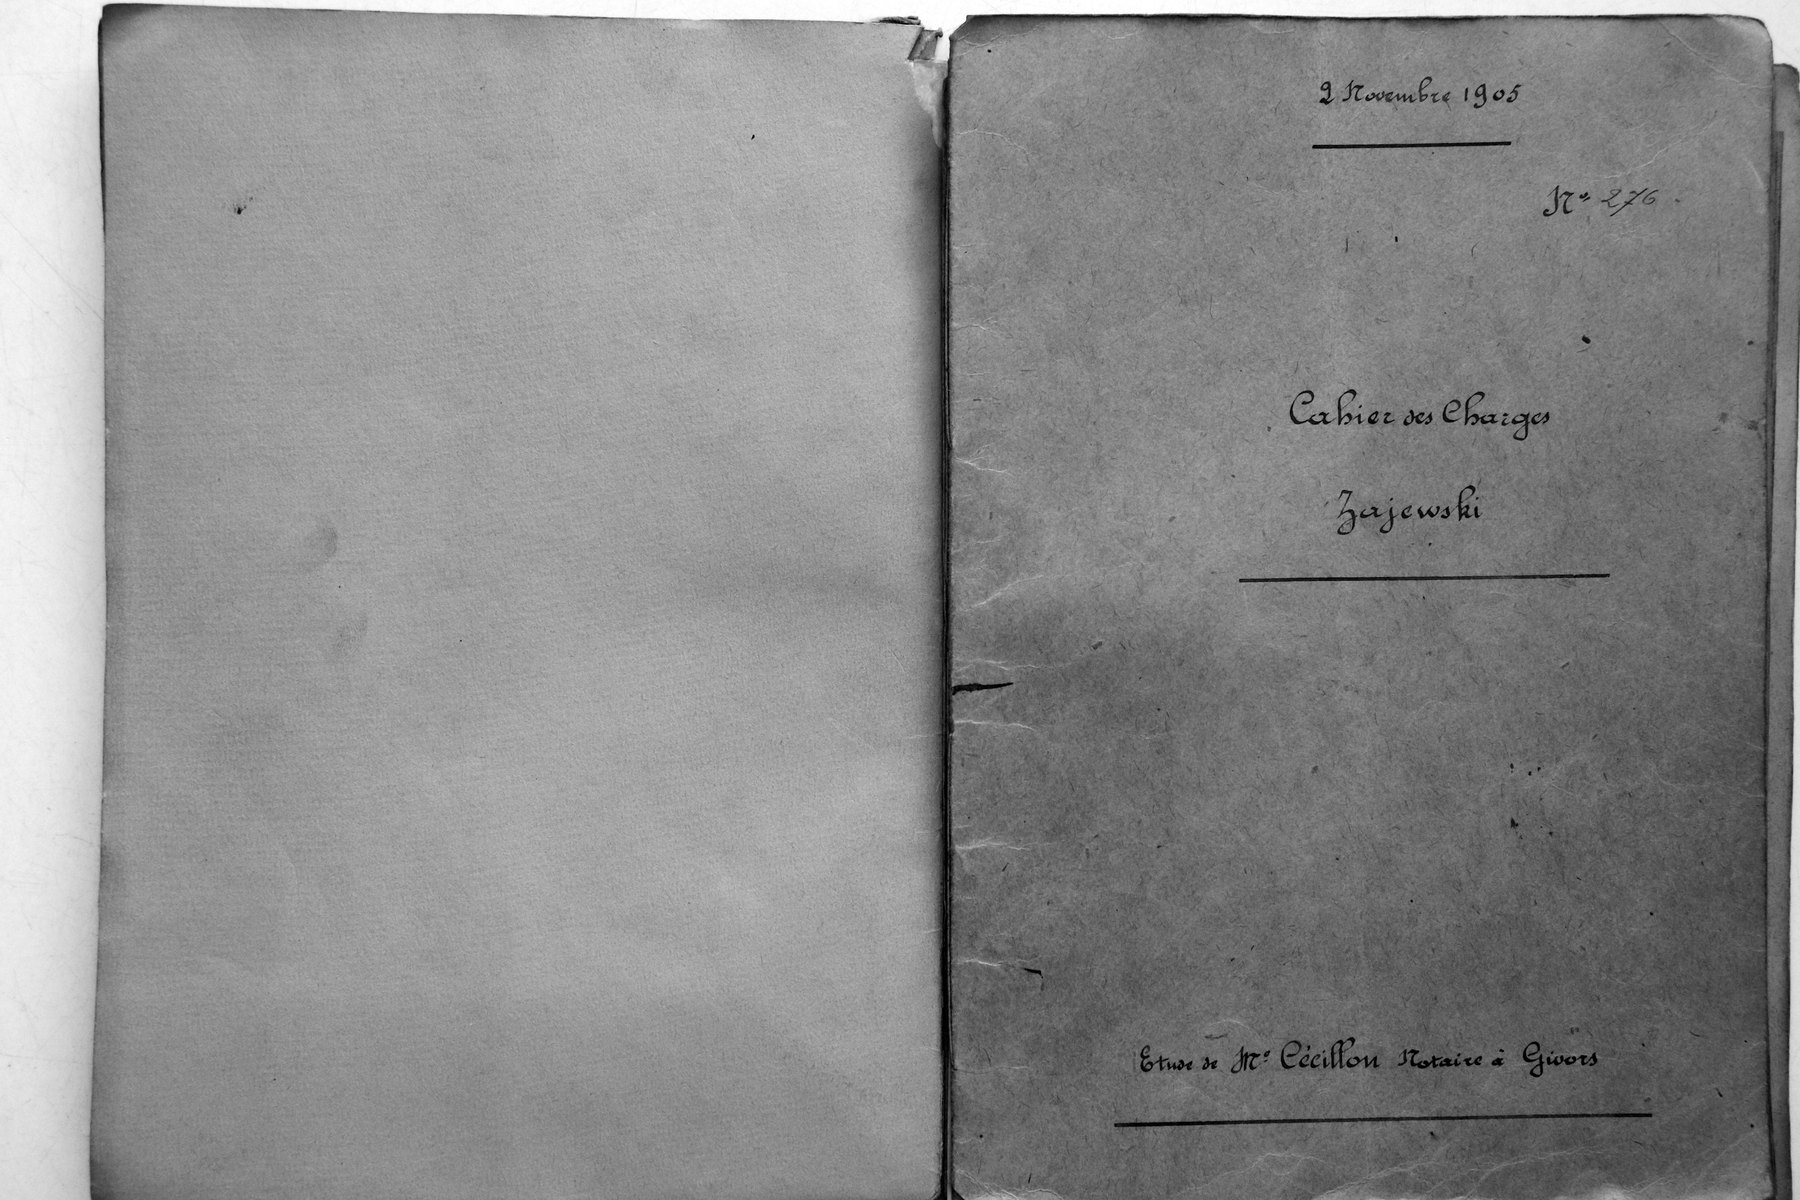 2 Novembre 1905
N° 276
Cahier des Charges
Zajewski
Etude de Mᵉ Cécillon Notaire à Givors